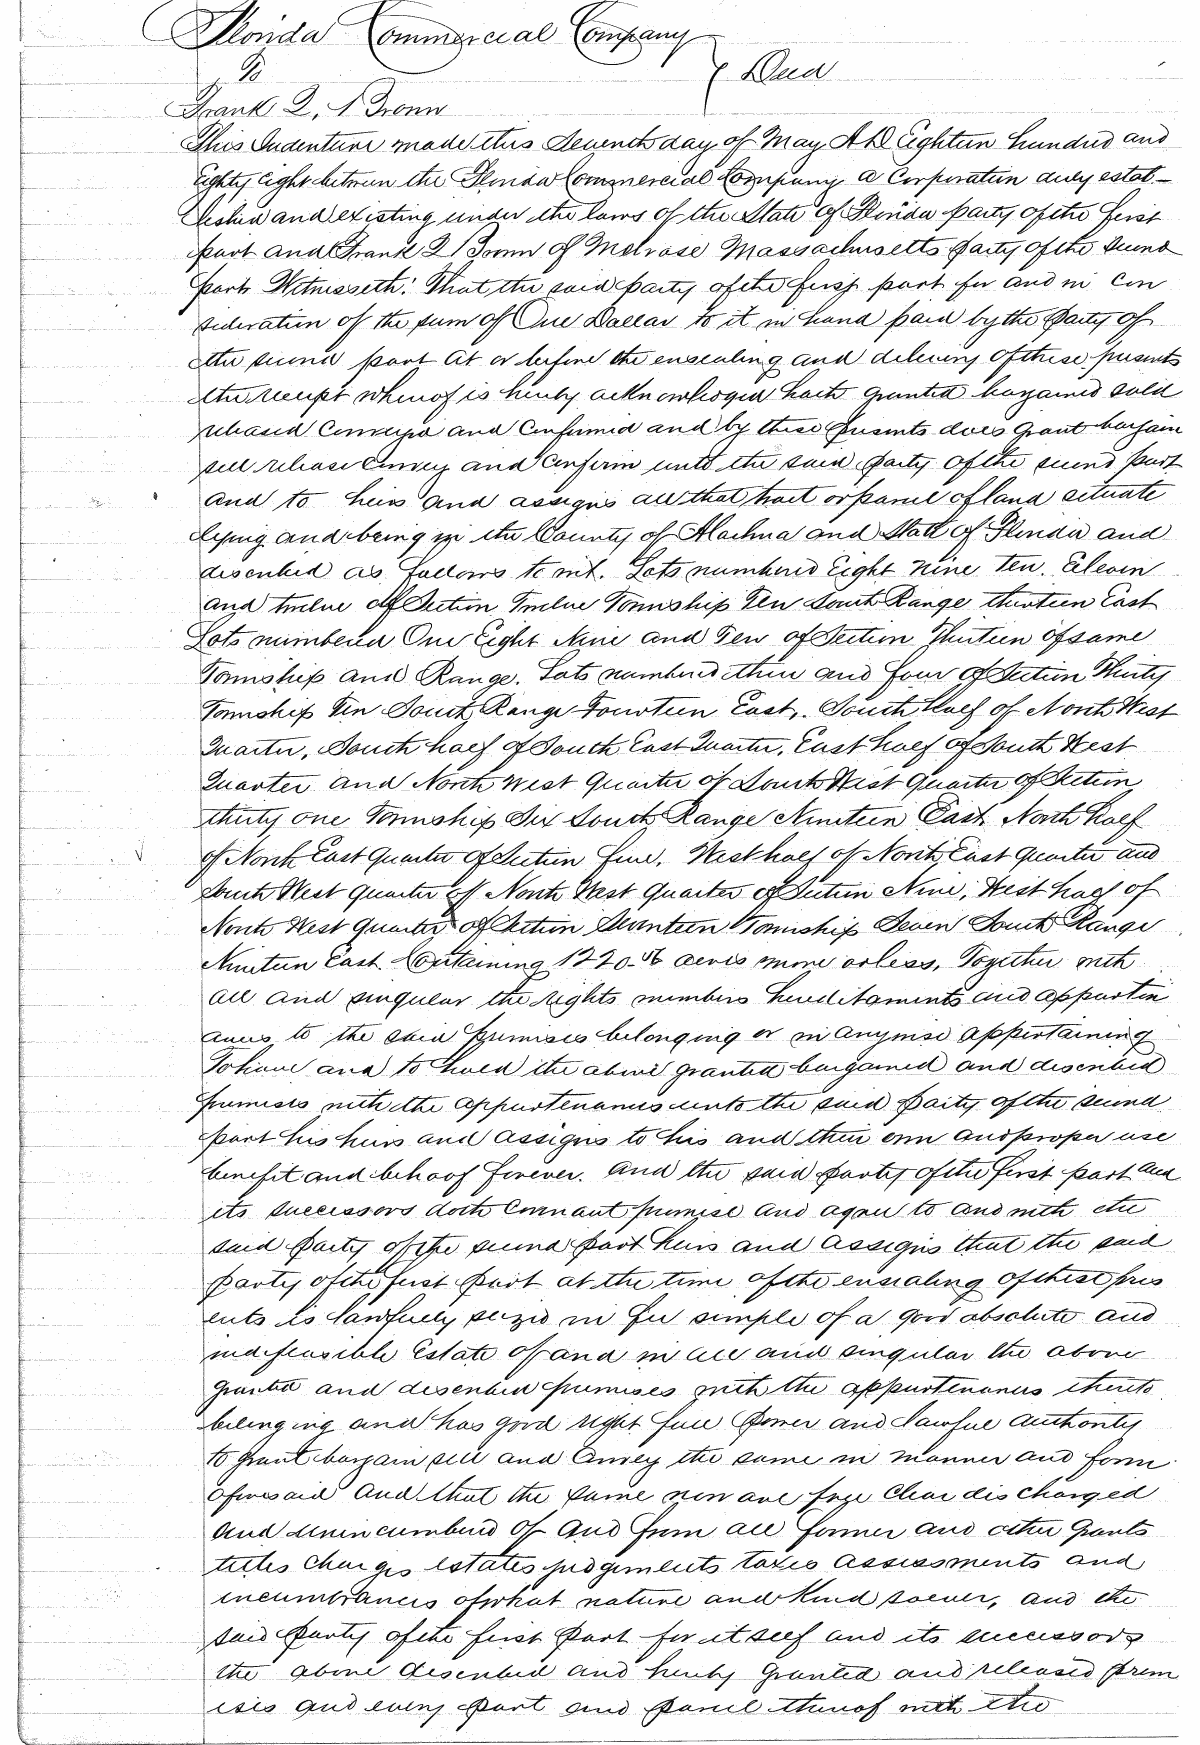 Florida Commercial Company
To } Deed
Frank Q. Brown
This Indenture made this Seventh day of May A.D. Eighteen hundred and
Eighty Eight between the Florida Commercial Company a Corporation duly estab-
lished and existing under the laws of the State of Florida party of the first
part and Frank Q. Brown of Melrose Massachusetts party of the second
part. Witnesseth: That the said party of the first part for and in con
sideration of the sum of One Dollar to it in hand paid by the party of
the second part at or before the ensealing and delivery of these presents
the receipt whereof is hereby acknowledged hath granted bargained sold
released conveyed and confirmed and by these presents does grant bargain
sell release convey and confirm unto the said party of the second part
and to heirs and assigns all that tract or parcel of land situate
lying and being in the County of Alachua and State of Florida and
described as follows to wit. Lots numbered Eight nine ten. Eleven
and twelve of Section Twelve Township Ten South Range thirteen East
Lots numbered One Eight Nine and Ten of Section Thirteen of same
Township and Range. Lots numbered three and four of Section Thirty
Township Ten South Range Fourteen East. South Half of North West
Quarter, South half of South East Quarter, East half of South West
Quarter and North West Quarter of South West Quarter of Section
thirty one Township Six South Range Nineteen East. North half
of North East Quarter of Section five. West half of North East Quarter and
South West Quarter of North West Quarter of Section Nine, West half of
North West Quarter of Section Seventeen Township Seven South Range
Nineteen East. Containing acres more or less, Together with
all and singular the rights members hereditaments and appurten
ances to the said premises belonging or in anywise appertaining
To have and to hold the above granted bargained and described
premises with the appurtenances unto the said party of the second
part his heirs and assigns to his and their own and proper use
benefit and behoof forever. And the said party of the first part and
its successors doth covenant promise and agree to and with the
said party of the second part heirs and assigns that the said
party of the first part at the time of the ensealing of these pres
ents is lawfully seized in fee simple of a good absolute and
indefeasible Estate of and in all and singular the above
granted and described premises with the appurtenances thereto
belonging and has good right full power and lawful authority
to grant bargain sell and convey the same in manner and form
aforesaid And that the same now are free clear discharged
and unincumbered of and from all former and other grants
titles charges estates judgements taxes assessments and
incumbrances of what nature and kind soever, and the
said party of the first part for itself and its successors
the above described and hereby granted and released prem
ises and every part and parcel thereof with the